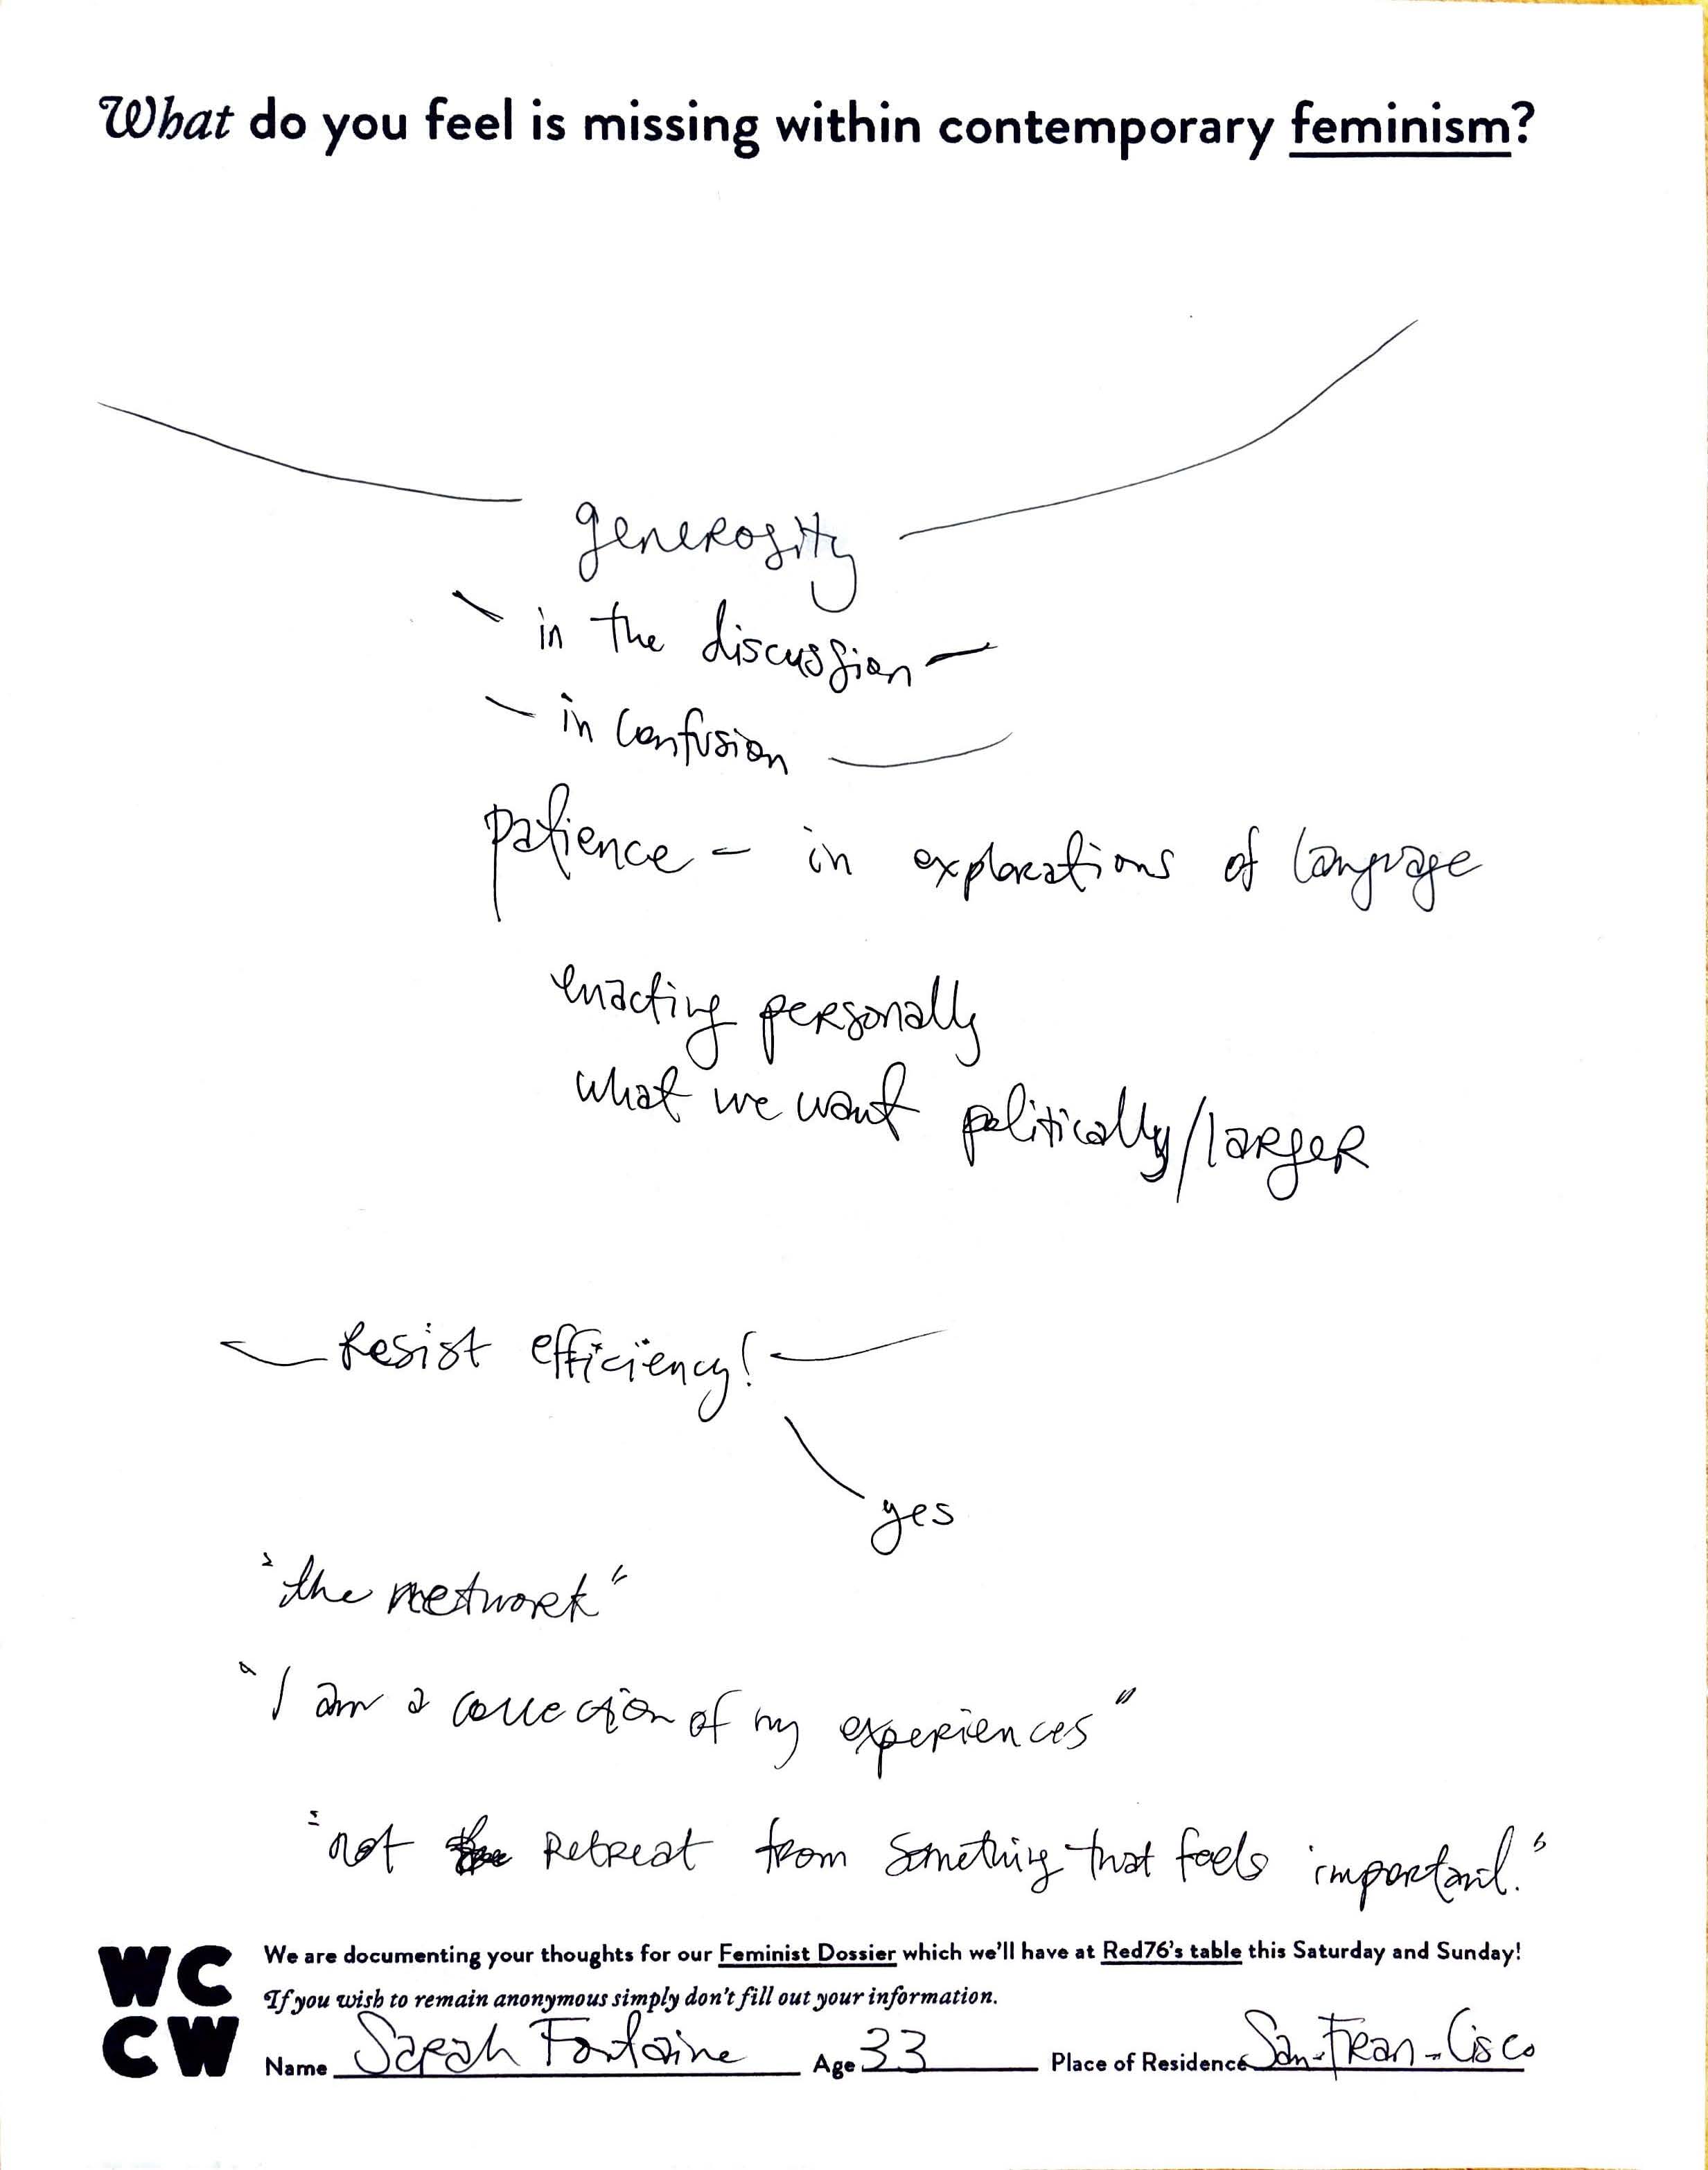 What do you feel is missing within contemporary feminism?
generosity
- in the discussion -
- in confusion -
patience - in explorations of language
enacting personally
what we want politically/larger
- Resist efficiency! -
yes
"the network"
"I am a collection of my experiences"
"not the Retreat from something that feels important."
WC
CW
We are documenting your thoughts for our Feminist Dossier which we'll have at Red76's table this Saturday and Sunday!
If you wish to remain anonymous simply don't fill out your information.
Name Sarah Fontaine Age 33 Place of Residence San-Fran-Cisco